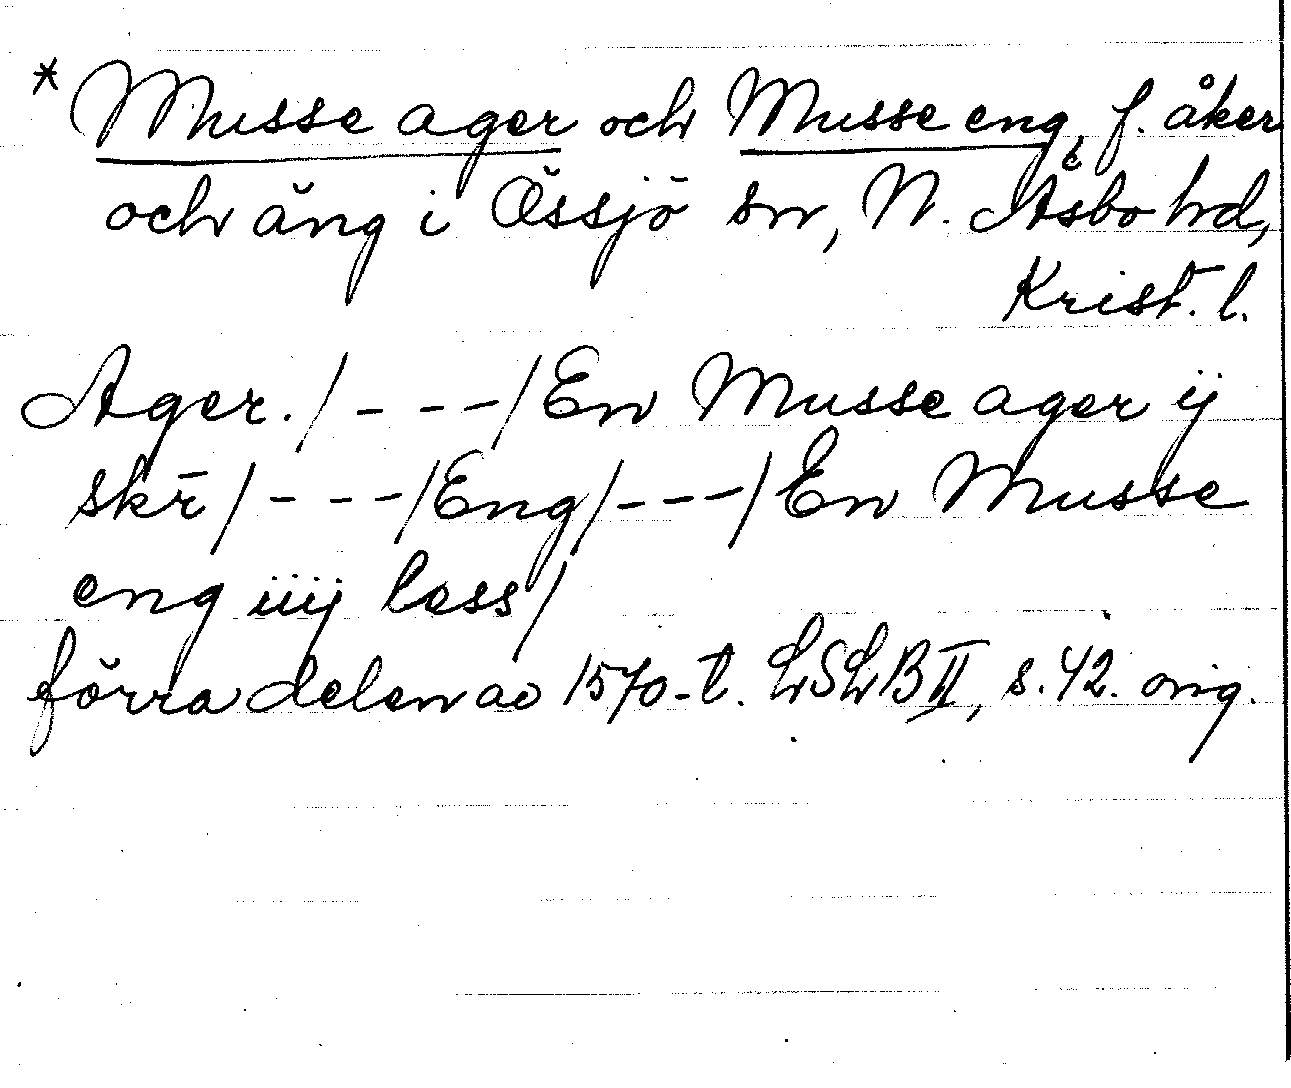 * Musse ager och Musse eng, f. åker
och äng i Össjö sn, N. Åsbo hd,
Krist. l.
Ager./---/En Musse ager ij
skr̄/---/Eng/---/En Musse
eng iiij less/
förra delen av 1570-t. LSLB II, s. 42. orig.